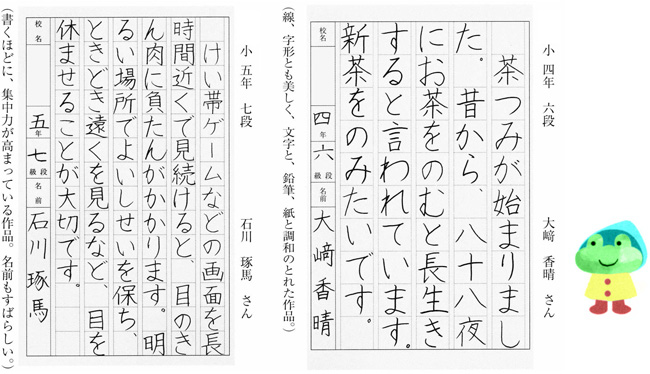 小 四年 六段
大﨑 香晴 さん
茶つみが始まりまし
た。昔から、八十八夜
にお茶をのむと長生き
すると言われています。
新茶をのみたいです。
校名
四年
六段級
名前
大﨑香晴
(線、字形とも美しく、文字と、鉛筆、紙と調和のとれた作品。)
小 五年 七段
石川 琢馬 さん
けい帯ゲームなどの画面を長
時間近くで見続けると、目のき
ん肉に負たんがかかります。明
るい場所でよいしせいを保ち、
ときどき遠くを見るなど、目を
休ませることが大切です。
校名
五年
七段級
名前
石川琢馬
(書くほどに、集中力が高まっている作品。名前もすばらしい。)